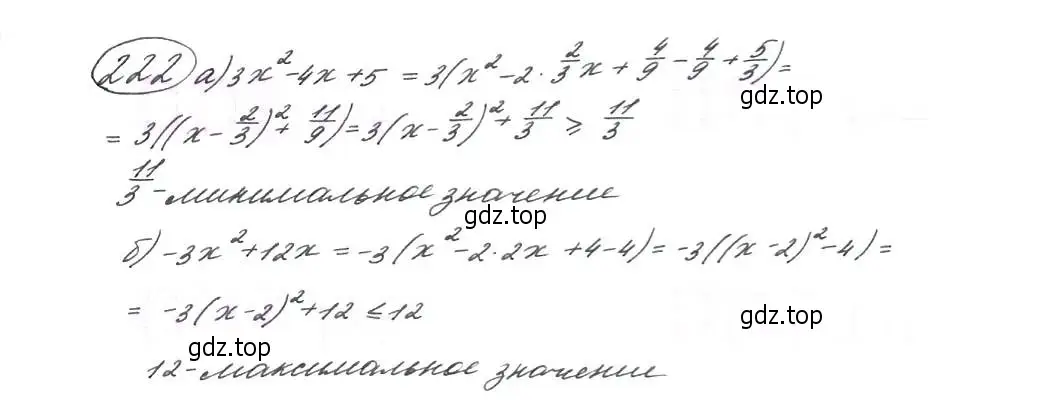 222 а) 3x² - 4x + 5 = 3(x² - 2 · 2/3 x + 4/9 - 4/9 + 5/3) =
gdz.top
= 3((x - 2/3)² + 11/9) = 3(x - 2/3)² + 11/3 ⩾ 11/3
11/3 - минимальное значение
gdz.top
б) -3x² + 12x = -3(x² - 2 · 2x + 4 - 4) = -3((x - 2)² - 4) =
= -3(x - 2)² + 12 ≤ 12
gdz.top
gdz.top
12 - максимальное значение